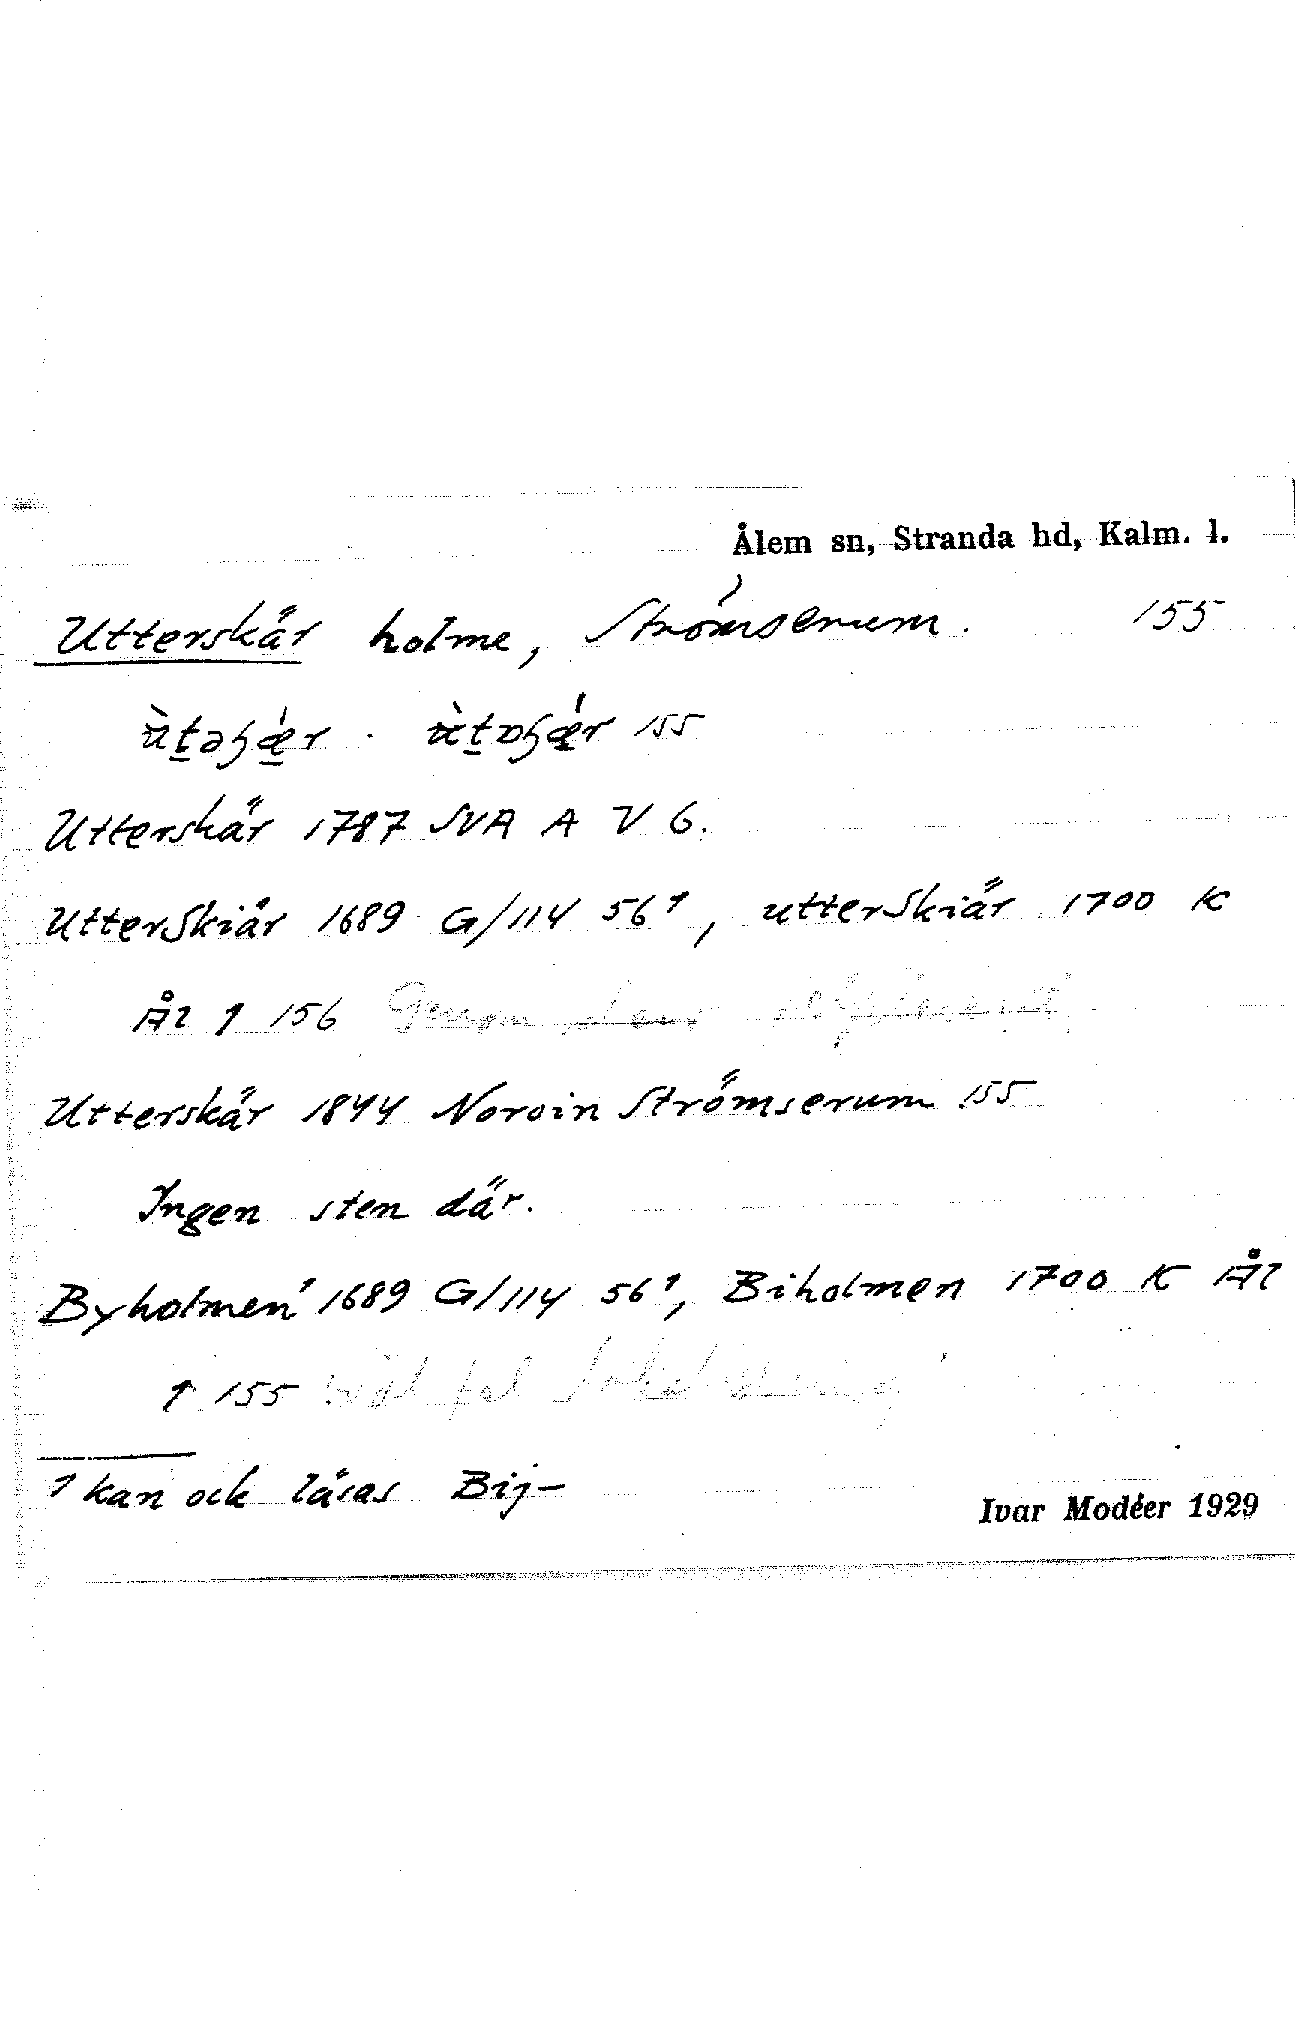 Ålem sn, Stranda hd, Kalm. l.
Utterskär holme, Strömserum. 155
155
Utterskär 1787 SVA A V 6.
UtterSkiär 1689 G/114 56¹, utterSkiär 1700 K
Ål 1 156 Genom
Utterskär 1844 Nordin Strömserum 155
Ingen sten där.
Byholmen¹ 1689 G/114 56¹, Biholmen 1700 K Ål
1 155
1 kan ock läsas Bij-
Ivar Modéer 1929